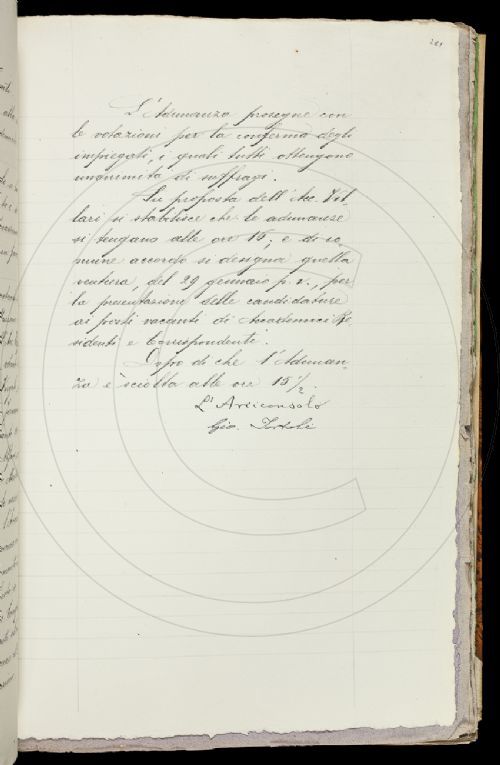 201
L'Adunanza prosegue con
le votazioni per la conferma degli
impiegati, i quali tutti ottengono
unanimità di suffragi.
Su proposta dell'Acc. Vil
lari si stabilisce che le adunanze
si tengano alle ore 15; e di co
mune accordo si designa quella
ventura, del 29 gennaio p. v., per
la presentazione delle candidature
ai posti vacanti di Accademici Re
sidenti e Corrispondenti.
Dopo di che l'Adunan-
za è sciolta alle ore 15 1/2.
L'Arciconsolo
Gio. Tortoli